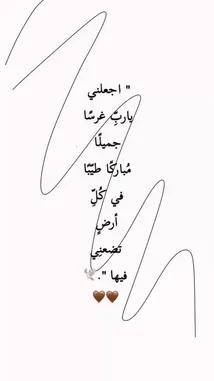 " اجعلني
ياربِّ غرسًا
جميلًا
مُباركًا طيّبًا
في كُلِّ
أرضٍ
تضعنِي
فيها ".🕊️
🤎🤎